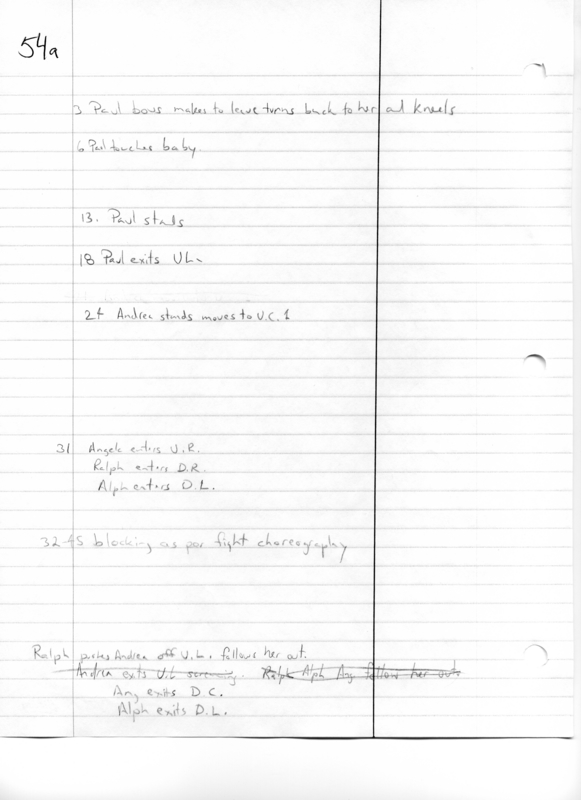 54a
3 Paul bows makes to leave turns back to her and kneels
6 Paul touches baby.
13. Paul stands
18 Paul exits UL
24 Andrea stands moves to U.C. 1
31 Angela enters U.R.
Ralph enters D.R.
Alph enters D.L.
32-45 blocking as per fight choreography
Ralph pushes Andrea off U.L. follows her out.
Andrea exits U.L screaming. Ralph Alph Ang follow her out
Ang exits D.C.
Alph exits D.L.